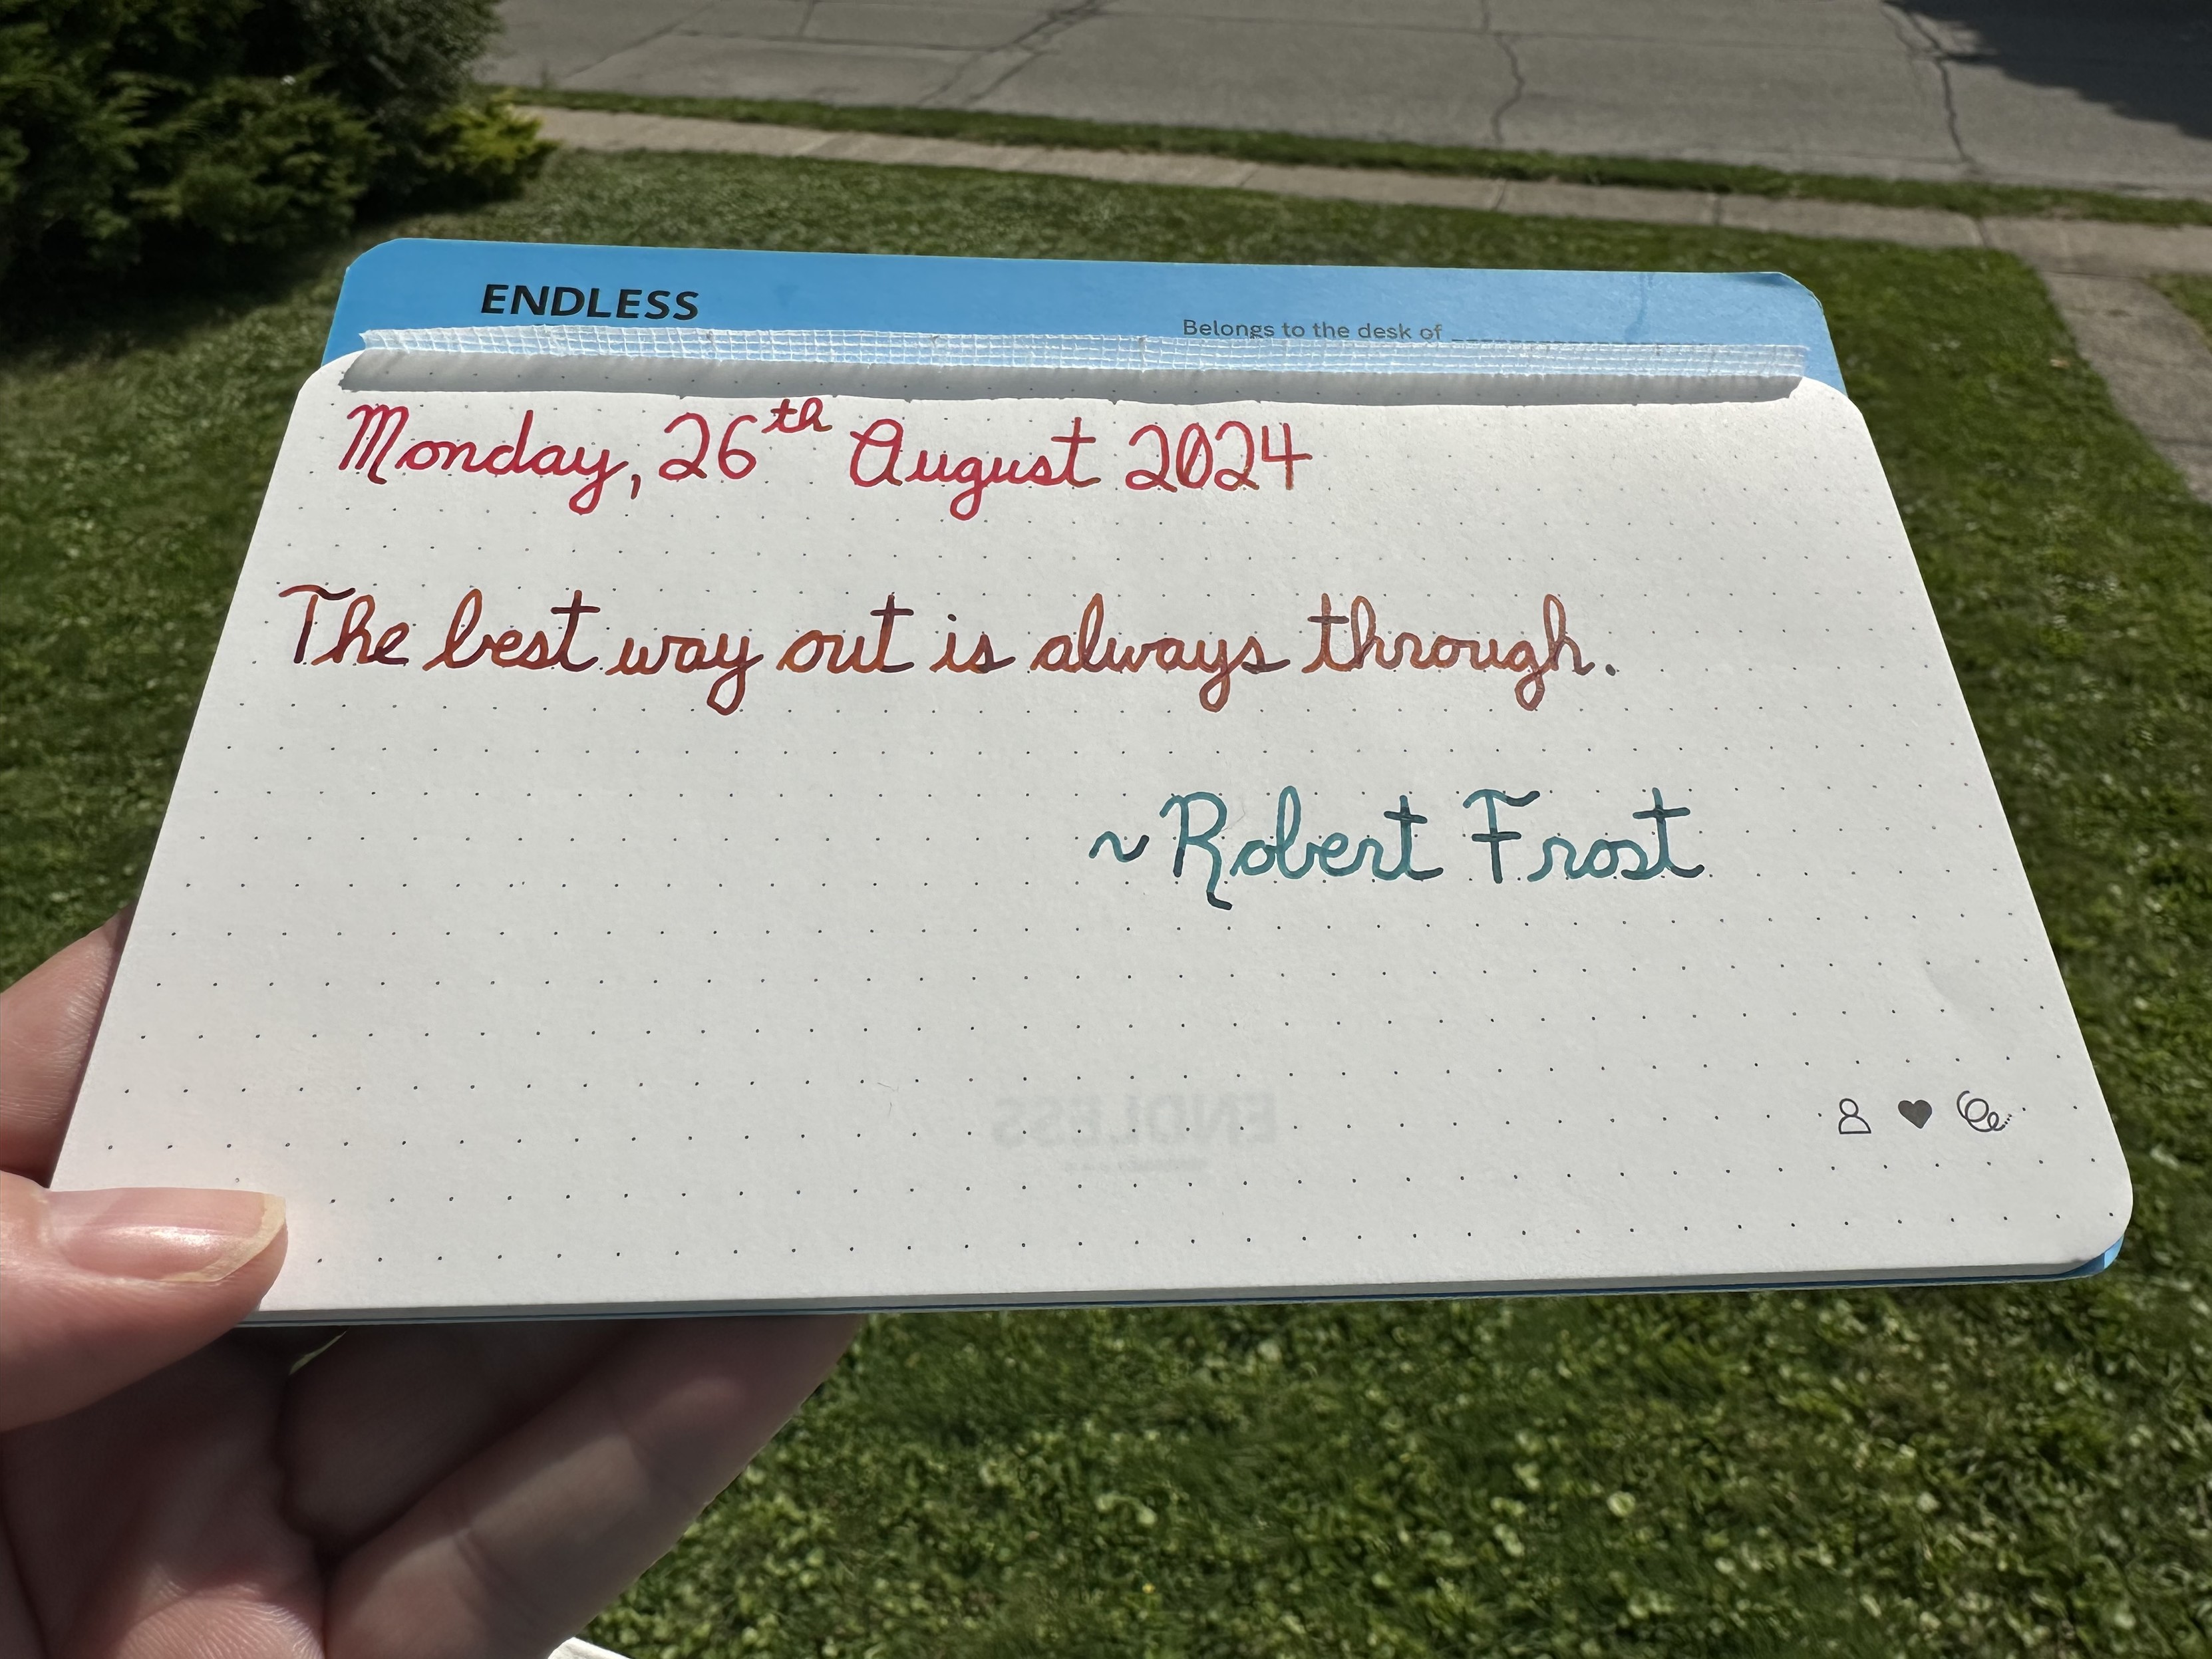 ENDLESS
Belongs to the desk of
Monday, 26th August 2024
The best way out is always through.
~Robert Frost
ENDLESS